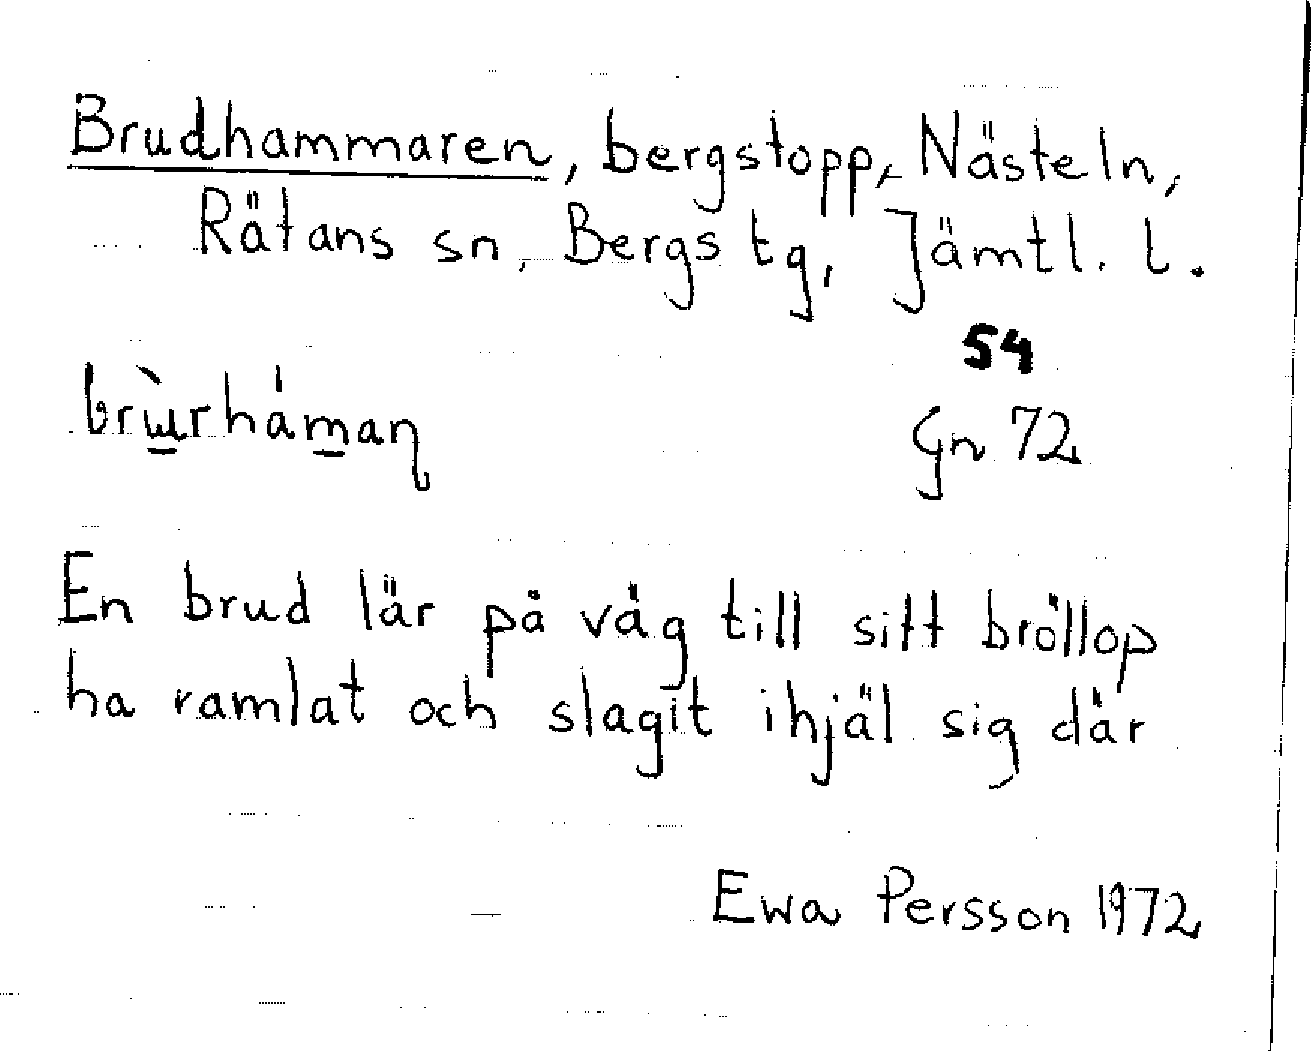 Brudhammaren, bergstopp, Nästeln,
Rätans sn, Bergs tg, Jämtl. l.
54
brùrhámaɳ
Gn 72
En brud lär på väg till sitt bröllop
ha ramlat och slagit ihjäl sig där
Ewa Persson 1972